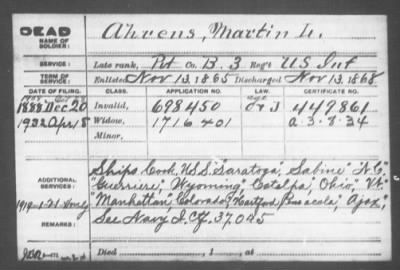 DEAD
NAME OF SOLDIER:
Ahrens, Martin L.
SERVICE:
Late rank, Pvt Co. B. 3 Reg't US Inf
TERM OF SERVICE:
Enlisted Nov 13, 1865 Discharged Nov 13, 1868
DATE OF FILING. CLASS. APPLICATION NO. LAW. CERTIFICATE NO.
1888 Dec 20 Invalid, 698450 449861
1932 Apr 8 Widow, 1716401 a 3-8-34
Minor,
ADDITIONAL SERVICES:
Ships Cook, U.S.S. "Saratoga", "Sabine"
"Guerriere", "Wyoming", "Catalpa", "Ohio", "Vt."
"Manhattan", "Colorado", "Hartford", "Ajax",
REMARKS:
See Navy I. Ctf. 37,025
Died , 1 , at